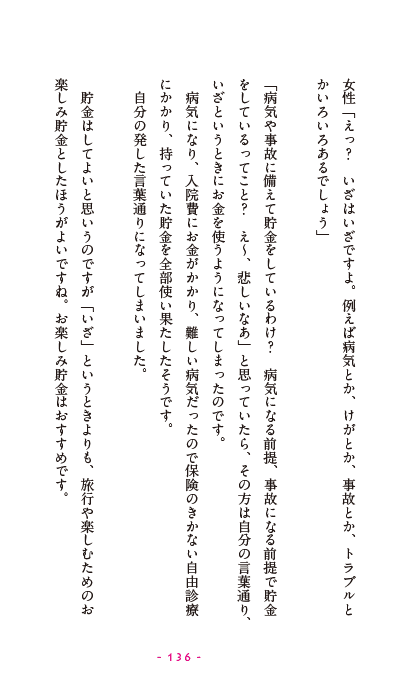 女性「えっ？　いざはいざですよ。例えば病気とか、けがとか、事故とか、トラブルと
かいろいろあるでしょう」
「病気や事故に備えて貯金をしているわけ？　病気になる前提、事故になる前提で貯金
をしているってこと？　え～、悲しいなあ」と思っていたら、その方は自分の言葉通り、
いざというときにお金を使うようになってしまったのです。
　病気になり、入院費にお金がかかり、難しい病気だったので保険のきかない自由診療
にかかり、持っていた貯金を全部使い果たしたそうです。
　自分の発した言葉通りになってしまいました。
　貯金はしてよいと思いうのですが「いざ」というときよりも、旅行や楽しむためのお
楽しみ貯金としたほうがよいですね。お楽しみ貯金はおすすめです。
- 136 -